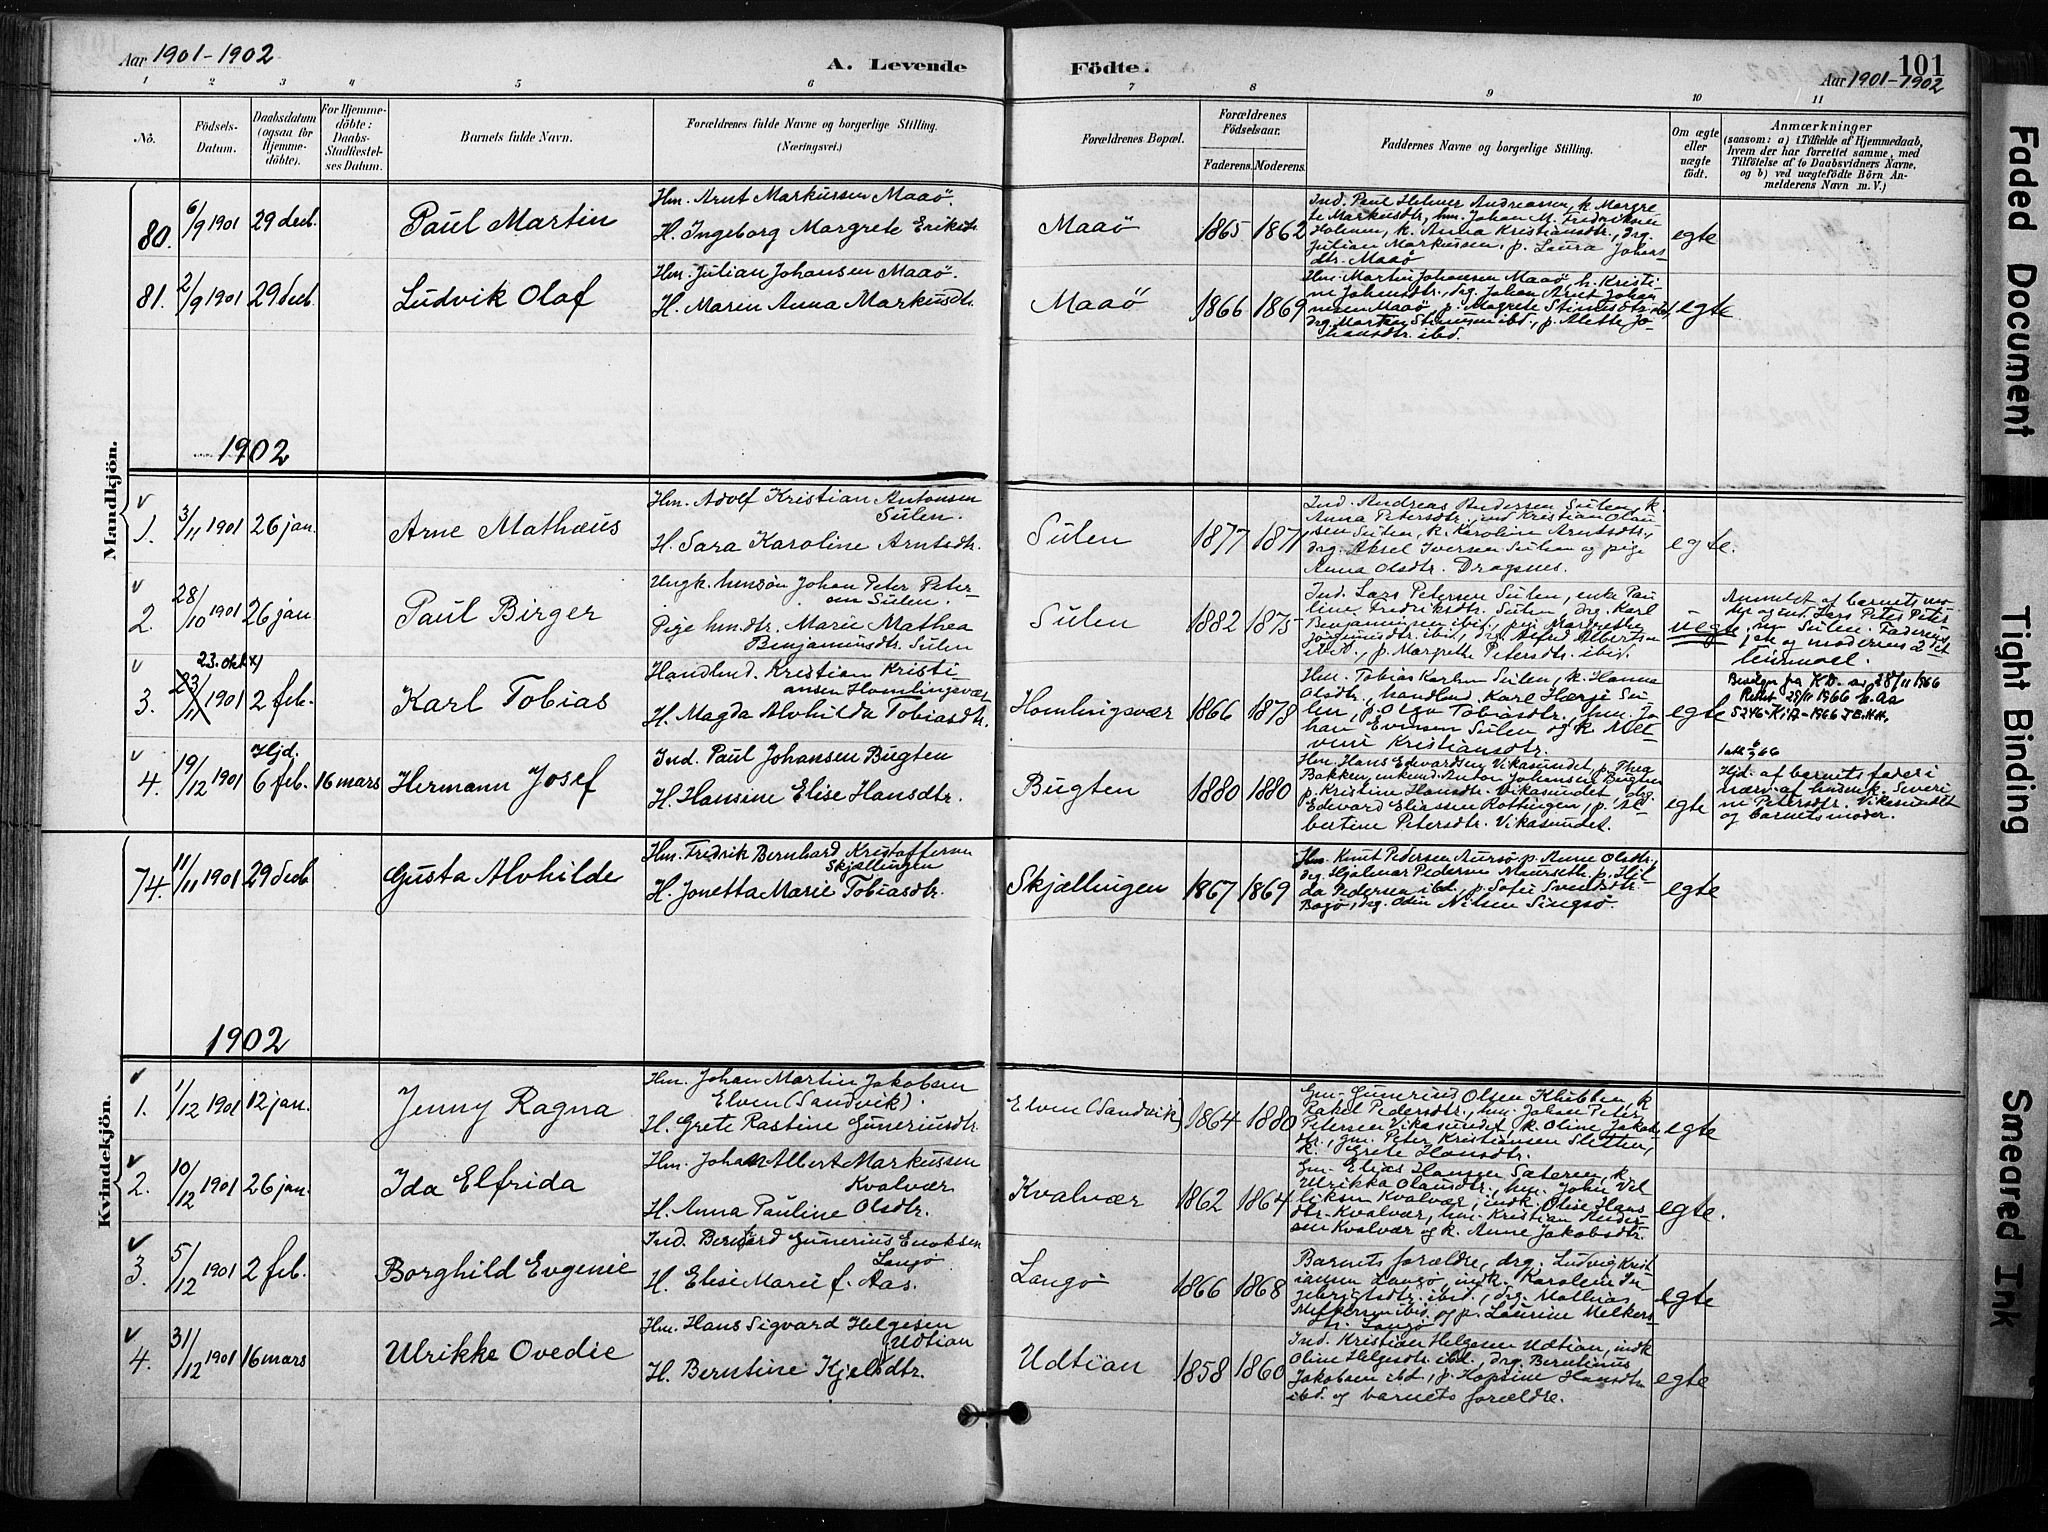 Aar 1901-1902
A. Levende
Födte.
101
Aar 1901-1902
1 2 3 4 5 6 7 8 9 10 11
No.
Födsels-
Datum.
Daabsdatum
(ogsaa for
Hjemme-
döbte).
For Hjemme-
döbte:
Daabs-
Stadfæstel-
ses Datum.
Barnets fulde Navn.
Forældrenes fulde Navne og borgerlige Stilling.
(Næringsvei.)
Forældrenes Bopæl.
Forældrenes
Födselsaar.
Faderens. Moderens.
Faddernes Navne og borgerlige Stilling.
Om ægte
eller
uægte
födt.
Anmærkninger
(saasom: a) i Tilfælde af Hjemmedaab,
hvem der har forrettet samme, med
Tilföielse af to Daabsvidners Navne.
og b) ved uægtefödte Börn An-
melderens Navn m. V.)
Mandkjön.
80. 6/9 1901 29 decb. Paul Martin
Hm. Arnt Markussen Maaö.
H. Ingeborg Margrete Eriksdtr.
Maaö 1865 1862
Ind. Paul Helmer Andreassen, k. Margre-
te Markusdtr., hm. Johan M. Fredriksen
Holmen, k. Anna Kristiansdtr., drg.
Julian Markussen, p. Laura Johans-
dtr. Maaö
egte
81. 2/9 1901 29 decb. Ludvik Olaf
Hm. Julian Johansen Maaö.
H. Maren Anna Markusdtr.
Maaö 1866 1869
Hm. Martin Johansen Maaö, k. Kristi-
ne Johansdtr., drg. Johan Arnt Johan-
nesen Maaö, p. Magrete
drg. ibd., p. Alette Jo-
hansdtr. ibd.
egte
1902
1. 3/11 1901 26 jan. Arne Mathæus
Hm. Adolf Kristian Antonsen
Sulen.
H. Sara Karoline Arntsdtr.
Sulen 1877 1871
Ind. Andreas Andersen Sulen, k.
Anna Petersdtr., ind. Kristian Olau-
sen Sulen, k. Karoline Arntsdtr.,
drg. Aksel Iversen Sulen og pige
Anna Olsdtr. Dragsnes.
egte.
2. 28/10 1901 26 jan Paul Birger
Ungk. hmsön Johan Peter Peter-
sen Sulen.
Pige hmdtr. Marie Mathea
Benjaminsdtr. Sulen
Sulen 1882 1875
Ind. Lars Petersen Sulen, enke Pau-
line Fredriksdtr. Sulen, drg. Karl
Benjaminsen ibid., pige Margrethe
ibid., drg. Alfred Albertsen
ibid., p. Margrethe Petersdtr. ibid.
uegte
Anmeldt af barnets mo-
der og ind. Lars Peter Peter-
sen Sulen. Faderens
1ste og moderens 2det
leiermaal.
23. okt. x)
3. 23/11 1901 2 feb. Karl Tobias
Handlend. Kristian Kristi-
ansen Homlingsvær
H. Magda Alvhilda Tobiasdtr.
Homlingsvær 1866 1878
Hm. Tobias Karlsen Sulen, k. Hanna
Olsdtr., handlend. Karl Su-
len, p. Olga Tobiasdtr., hm. Jo-
han Evensen Sulen og k. Mel-
vine Kristiansdtr.
egte
av 28/11 1966
Rettet 29/11 1966
5246-KiA-1966 JE.HH.
4. 19/12 1901 Hjd. 6 feb. 16 mars Hermann Josef
Ind. Paul Johansen Bugten
H. Hansine Elise Hansdtr.
Bugten 1880 1880
Hm. Hans Edvardsen Vikasundet, p. Thea
Bakken, Anton Johansen Bugten
p. Kristine Hansdtr. Vikasundet, drg.
Edvard Eliassen Rottingen, p. Al-
bertine Petersdtr. Vikasundet.
egte
Hjd. af barnets fader i
nærv. af husmk. Severi-
ne Petersdtr. Vikasundet
og barnets moder.
74. 11/11 1901 29 decb Gusta Alvhilde
Hm. Fredrik Bernhard Kristoffersen
Skjællingen
H. Jonetta Marie Tobiasdtr.
Skjællingen 1867 1869
Hm. Knut Pedersen Aursö, p. Anne Olsdtr.,
drg. Hjalmar Pedersen p. Hil-
da Pedersen ibd., p. Sofie Svendsdtr.
Bogö, drg. Odin Nilsen Singsö.
egte
1902
Kvindekjön.
1. 1/12 1901 12 jan. Jenny Ragna
Hm. Johan Martin Jakobsen
Elven (Sandvik).
H. Grete Rastine Guneriusdtr.
Elven (Sandvik) 1864 1880
Gm. Gunerius Olsen Klubben, k.
Rakel Pedersdtr., hm. Johan Peter
Petersen Vikasundet, k. Oline Jakobs-
dtr., gm. Peter Kristiansen Sletten,
k. Grete Hansdtr.
egte
2. 10/12 1901 26 jan. Ida Elfrida
Hm. Johan Albert Markussen
Kvalvær
H. Anna Pauline Olsdtr.
Kvalvær 1862 1864
Gm. Elias Hansen Sæteren, k.
Ulrikka Olausdtr., hm. John Vil-
liksen Kvalvær, indk. Olise Hans-
dtr. Kvalvær, hm. Kristian Ander-
sen Kvalvær og k. Anne Jakobsdtr.
egte.
3. 5/12 1901 2 feb. Borghild Evgenie
Ind. Bernhard Gunerius Enoksen
Langö
H. Elise Marie f. Aas.
Langö 1866 1868
Barnets forældre, drg. Ludvig Krist-
iansen Langö, indk. Karoline In-
gebrigtsdtr. ibid., drg. Mathias
Melkersen ibid. og p. Laurine Melkers-
dtr. Langö
egte
4. 31/12 1901 16 mars Ulrikke Ovedie
Hm. Hans Sigvard Helgesen
Udtian
H. Berntine Kjelsdtr.
Udtian 1858 1860
Ind. Kristian Helgesen Udtian, indk.
Oline Helgesdtr. ibd., drg. Berntinus
Jakobsen ibd., p. Hopsine Hansdtr.
ibd. og barnets forældre.
egte
Faded Document
Tight Binding
Smeared Ink